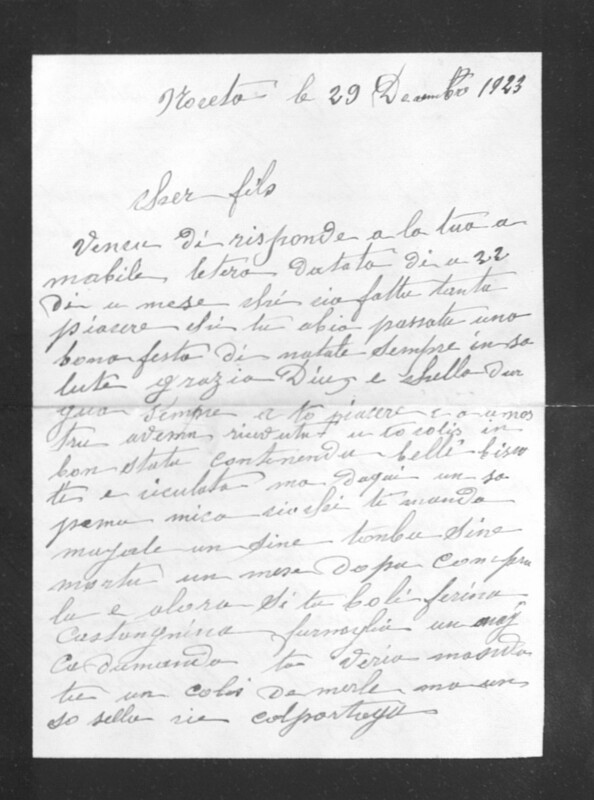 Noceta le 29 Decembre 1923
Cher fils
Vencu di risponde a la tua a
mabile letera datata di u 22
di u mese chi cia fattu tantu
piacere chi tu abia passatu una
bona festa di natale sempre in sa
lute grazia Diu e chella dur
gua sempre a to piacere e a a nos
tra avemu ricevutu u to colis in
bon statu contenendu belli biscu
ti e ciculata ma daqui un sa
pemu mica ciochi te manda
majale un sine tomba sine
mortu un mese dopu compra
lu e alora si tu boli farina
Castangnina furmaglia un ai
ca dumanda ta veria manda
tu un colis de merle ma un
so sella sie colportagu